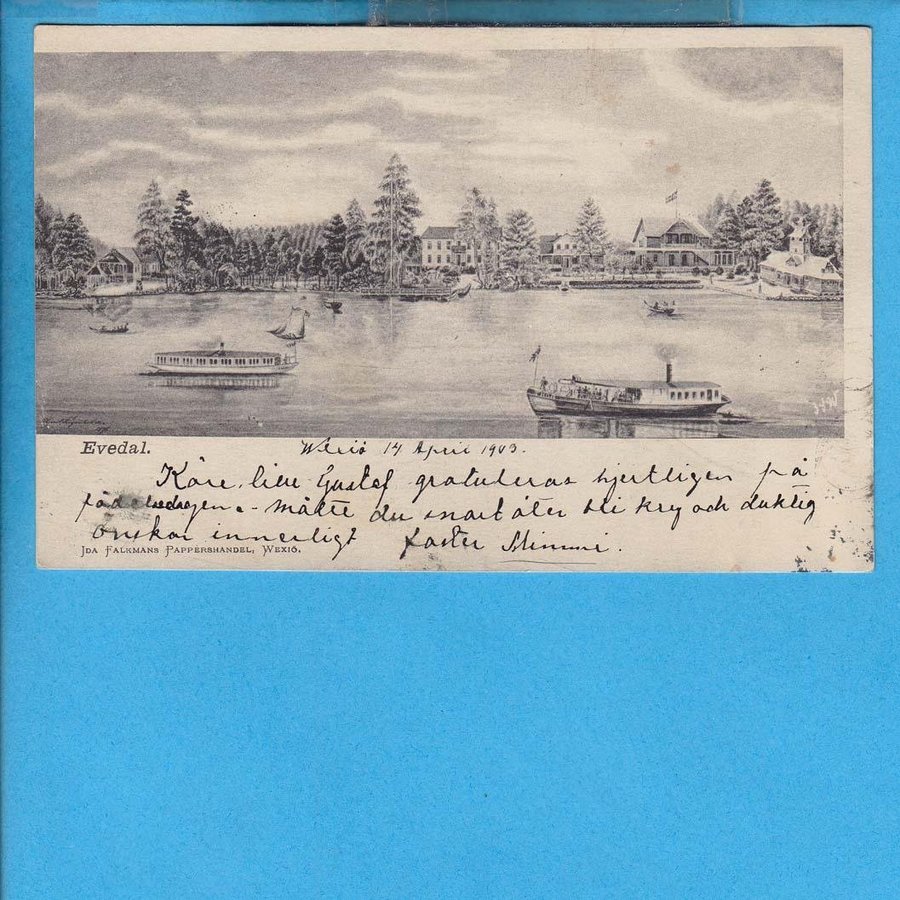 Evedal.
Wexiö 14 April 1903.
Käre, lille Gustaf gratuleras hjertligen på
födelsedagen - måtte du snart åter bli kry och duktig
önskar innerligt faster Mimmi.
JDA FALKMANS PAPPERSHANDEL, WEXIÖ.
HW